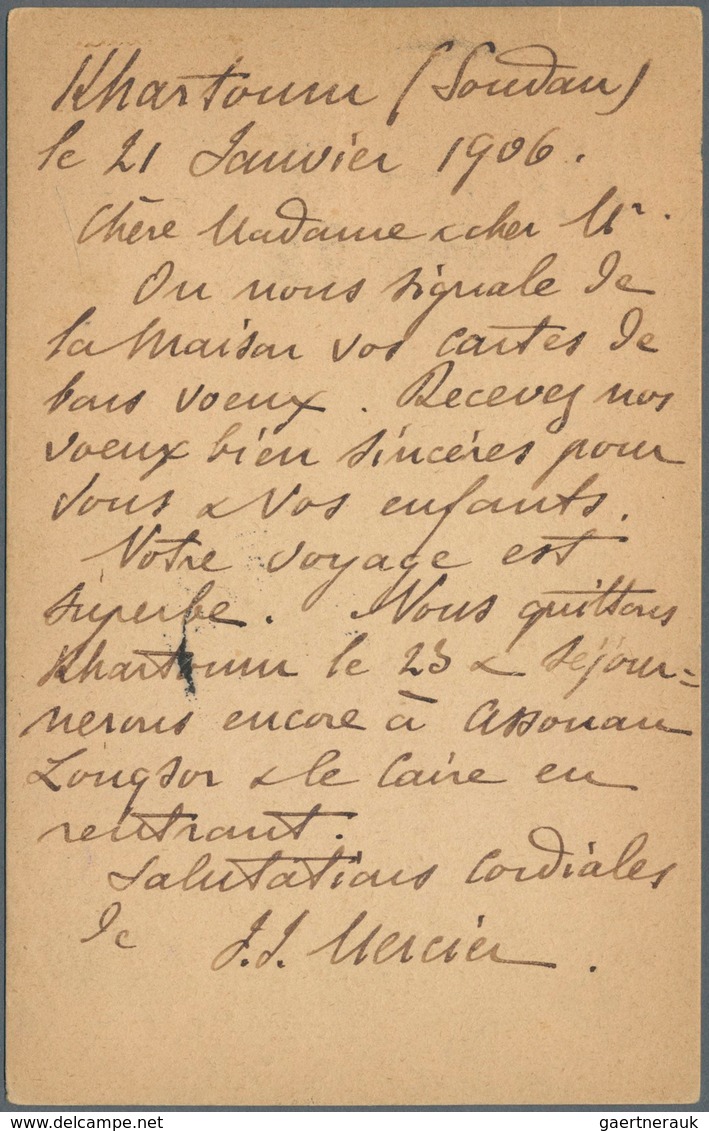 Khartoum (Soudan)
le 21 Janvier 1906.
Chère Madame & cher Mr.
On nous signale de
la Maison vos cartes de
bons voeux. Recevez nos
voeux bien sincères pour
vous & vos enfants.
Notre voyage est
superbe. Nous quittons
Khartoum le 23 & séjour=
nerons encore à Assouan
Longsor & le Caire en
rentrant.
Salutations cordiales
de J.J. Mercier.
gaertnerauk